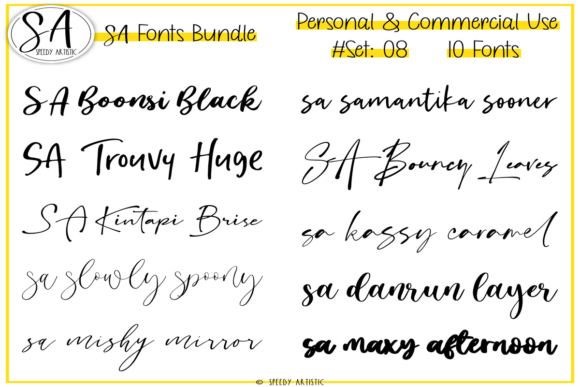 SA
SPEEDY ARTISTIC
SA Fonts Bundle
Personal & Commercial Use
#Set: 08 10 Fonts
SA Boonsi Black
SA Trouvy Huge
SA Kintapi Brise
sa slowly spoony
sa mishy mirror
sa samantika sooner
SA Bouncy Leaves
sa kassy caramel
sa danrun layer
sa maxy afternoon
© SPEEDY ARTISTIC